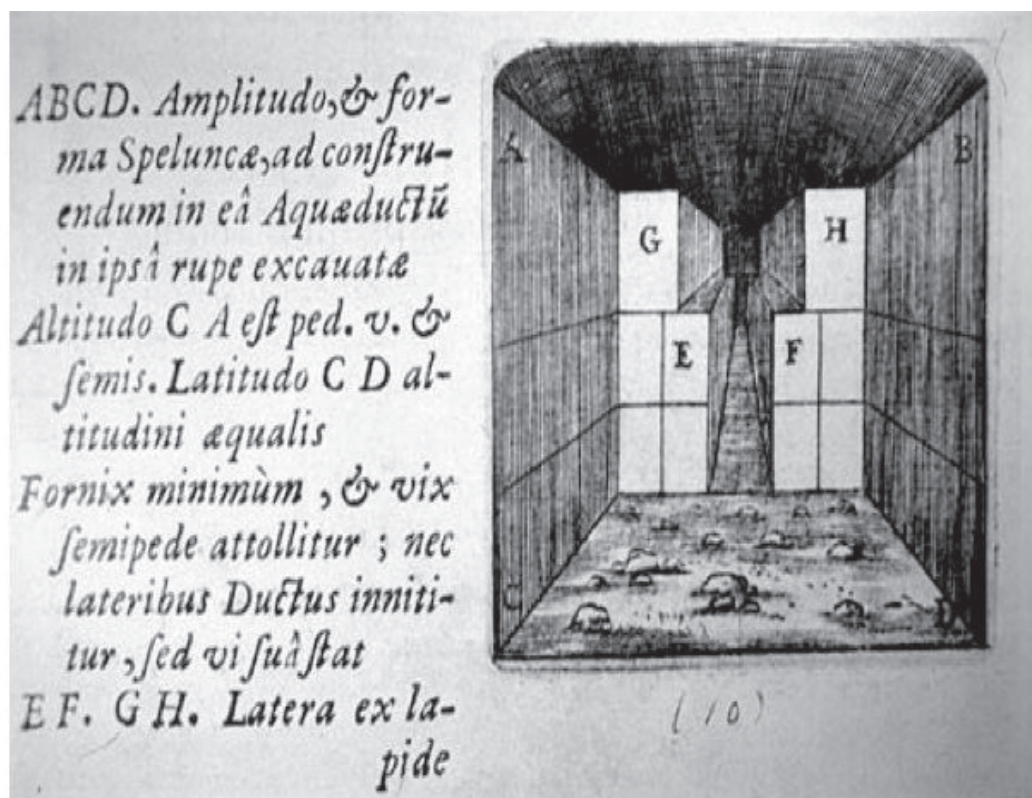 ABCD. Amplitudo, & for-
ma Speluncæ, ad conſtru-
endum in eâ Aquæductū
in ipsâ rupe excauatæ
Altitudo C A eſt ped. v. &
ſemis. Latitudo C D al-
titudini æqualis
Fornix minimùm, & vix
ſemipede attollitur; nec
lateribus Ductus inniti-
tur, ſed vi ſuâ ſtat
E F. G H. Latera ex la-
pide
A B
G H
E F
C D
(10)